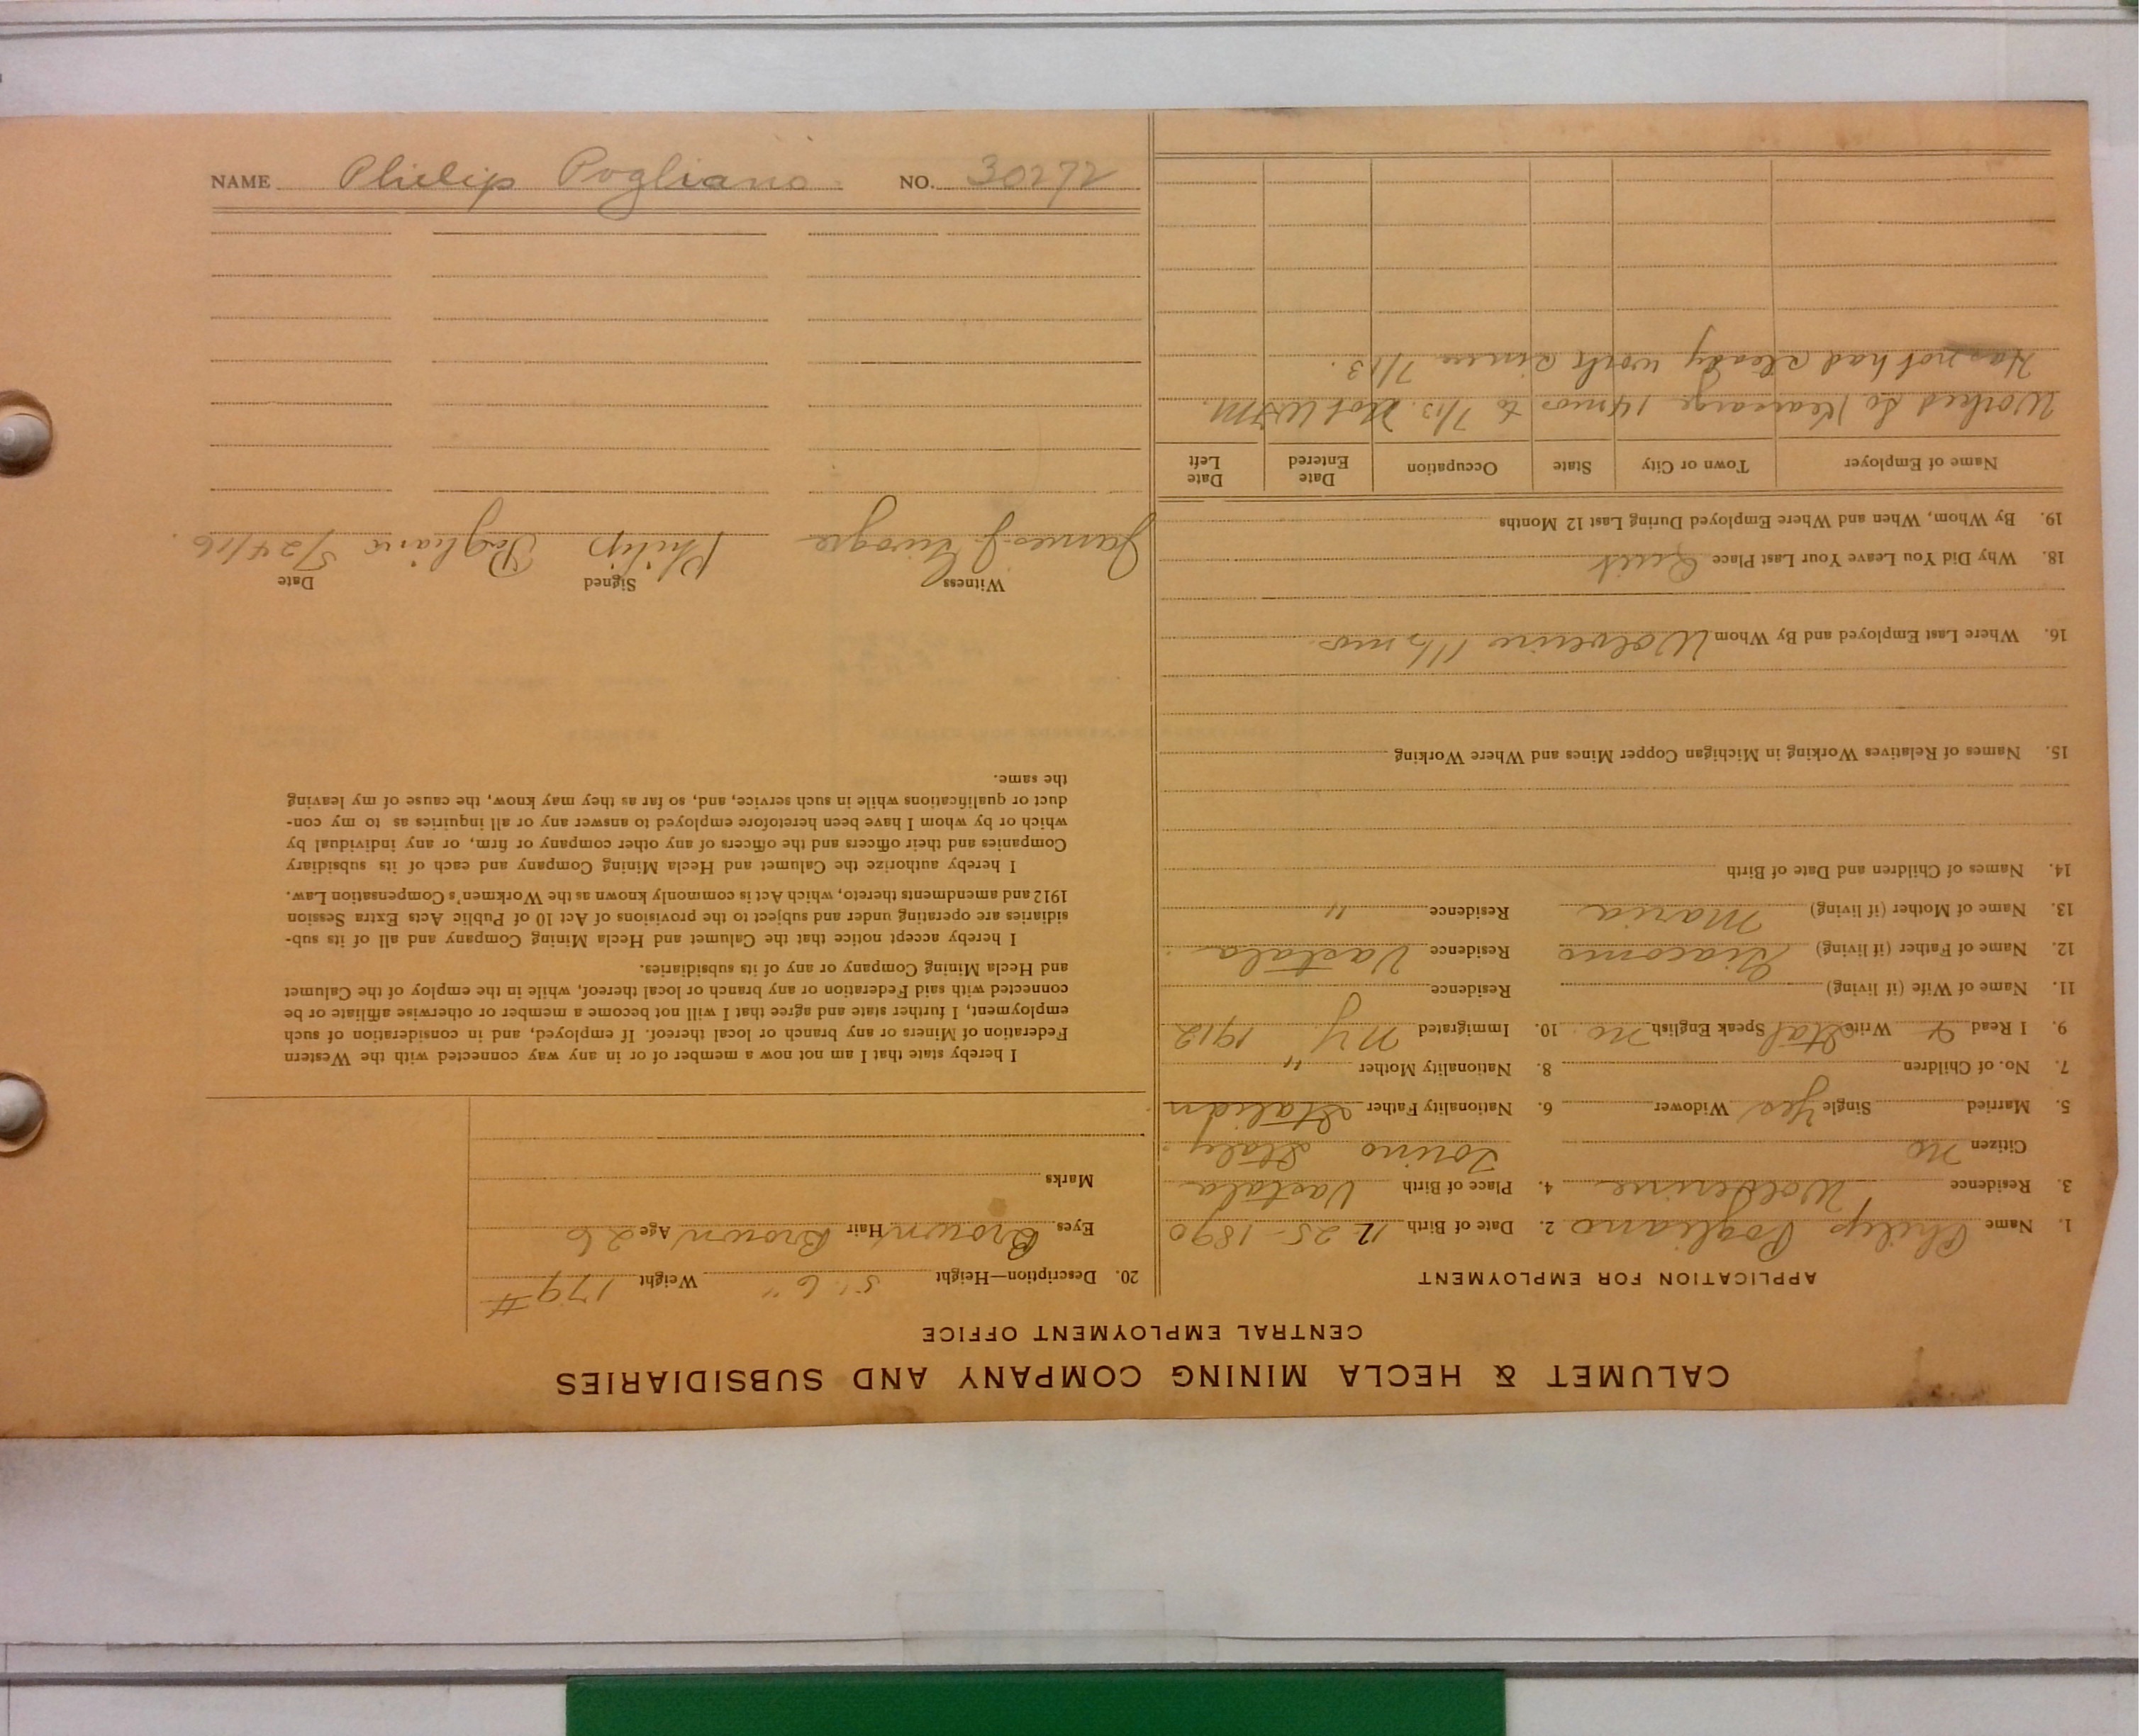 CALUMET & HECLA MINING COMPANY AND SUBSIDIARIES
CENTRAL EMPLOYMENT OFFICE
APPLICATION FOR EMPLOYMENT
1. Name Philip Pogliano 2. Date of Birth 12-25-1890
3. Residence Wolverine 4. Place of Birth Vastala
Citizen no Torino Italy
5. Married Single Yes Widower 6. Nationality Father Italian
7. No. of Children 8. Nationality Mother "
9. I Read & Write Ital Speak English no 10. Immigrated NY 1912
11. Name of Wife (if living) Residence
12. Name of Father (if living) Giacomo Residence Vastala
13. Name of Mother (if living) Maria Residence "
14. Names of Children and Date of Birth
15. Names of Relatives Working in Michigan Copper Mines and Where Working
16. Where Last Employed and By Whom Wolverine 1 1/2 mos
18. Why Did You Leave Your Last Place Quit
19. By Whom, When and Where Employed During Last 12 Months
Name of Employer Town or City State Occupation Date Entered Date Left
Worked So Kearsarge 14 mos to 7/13. Not W.F.M.
Has not had steady work since 7/13.
20. Description—Height 5' 6" Weight 179 #
Eyes Brown Hair Brown Age 26
Marks
I hereby state that I am not now a member of or in any way connected with the Western
Federation of Miners or any branch or local thereof. If employed, and in consideration of such
employment, I further state and agree that I will not become a member or otherwise affiliate or be
connected with said Federation or any branch or local thereof, while in the employ of the Calumet
and Hecla Mining Company or any of its subsidiaries.
I hereby accept notice that the Calumet and Hecla Mining Company and all of its sub-
sidiaries are operating under and subject to the provisions of Act 10 of Public Acts Extra Session
1912 and amendments thereto, which Act is commonly known as the Workmen's Compensation Law.
I hereby authorize the Calumet and Hecla Mining Company and each of its subsidiary
Companies and their officers and the officers of any other company or firm, or any individual by
which or by whom I have been heretofore employed to answer any or all inquiries as to my con-
duct or qualifications while in such service, and, so far as they may know, the cause of my leaving
the same.
Witness Signed Date
James J. Philip Pogliano 5/24/16.
NAME Philip Pogliano NO. 30272